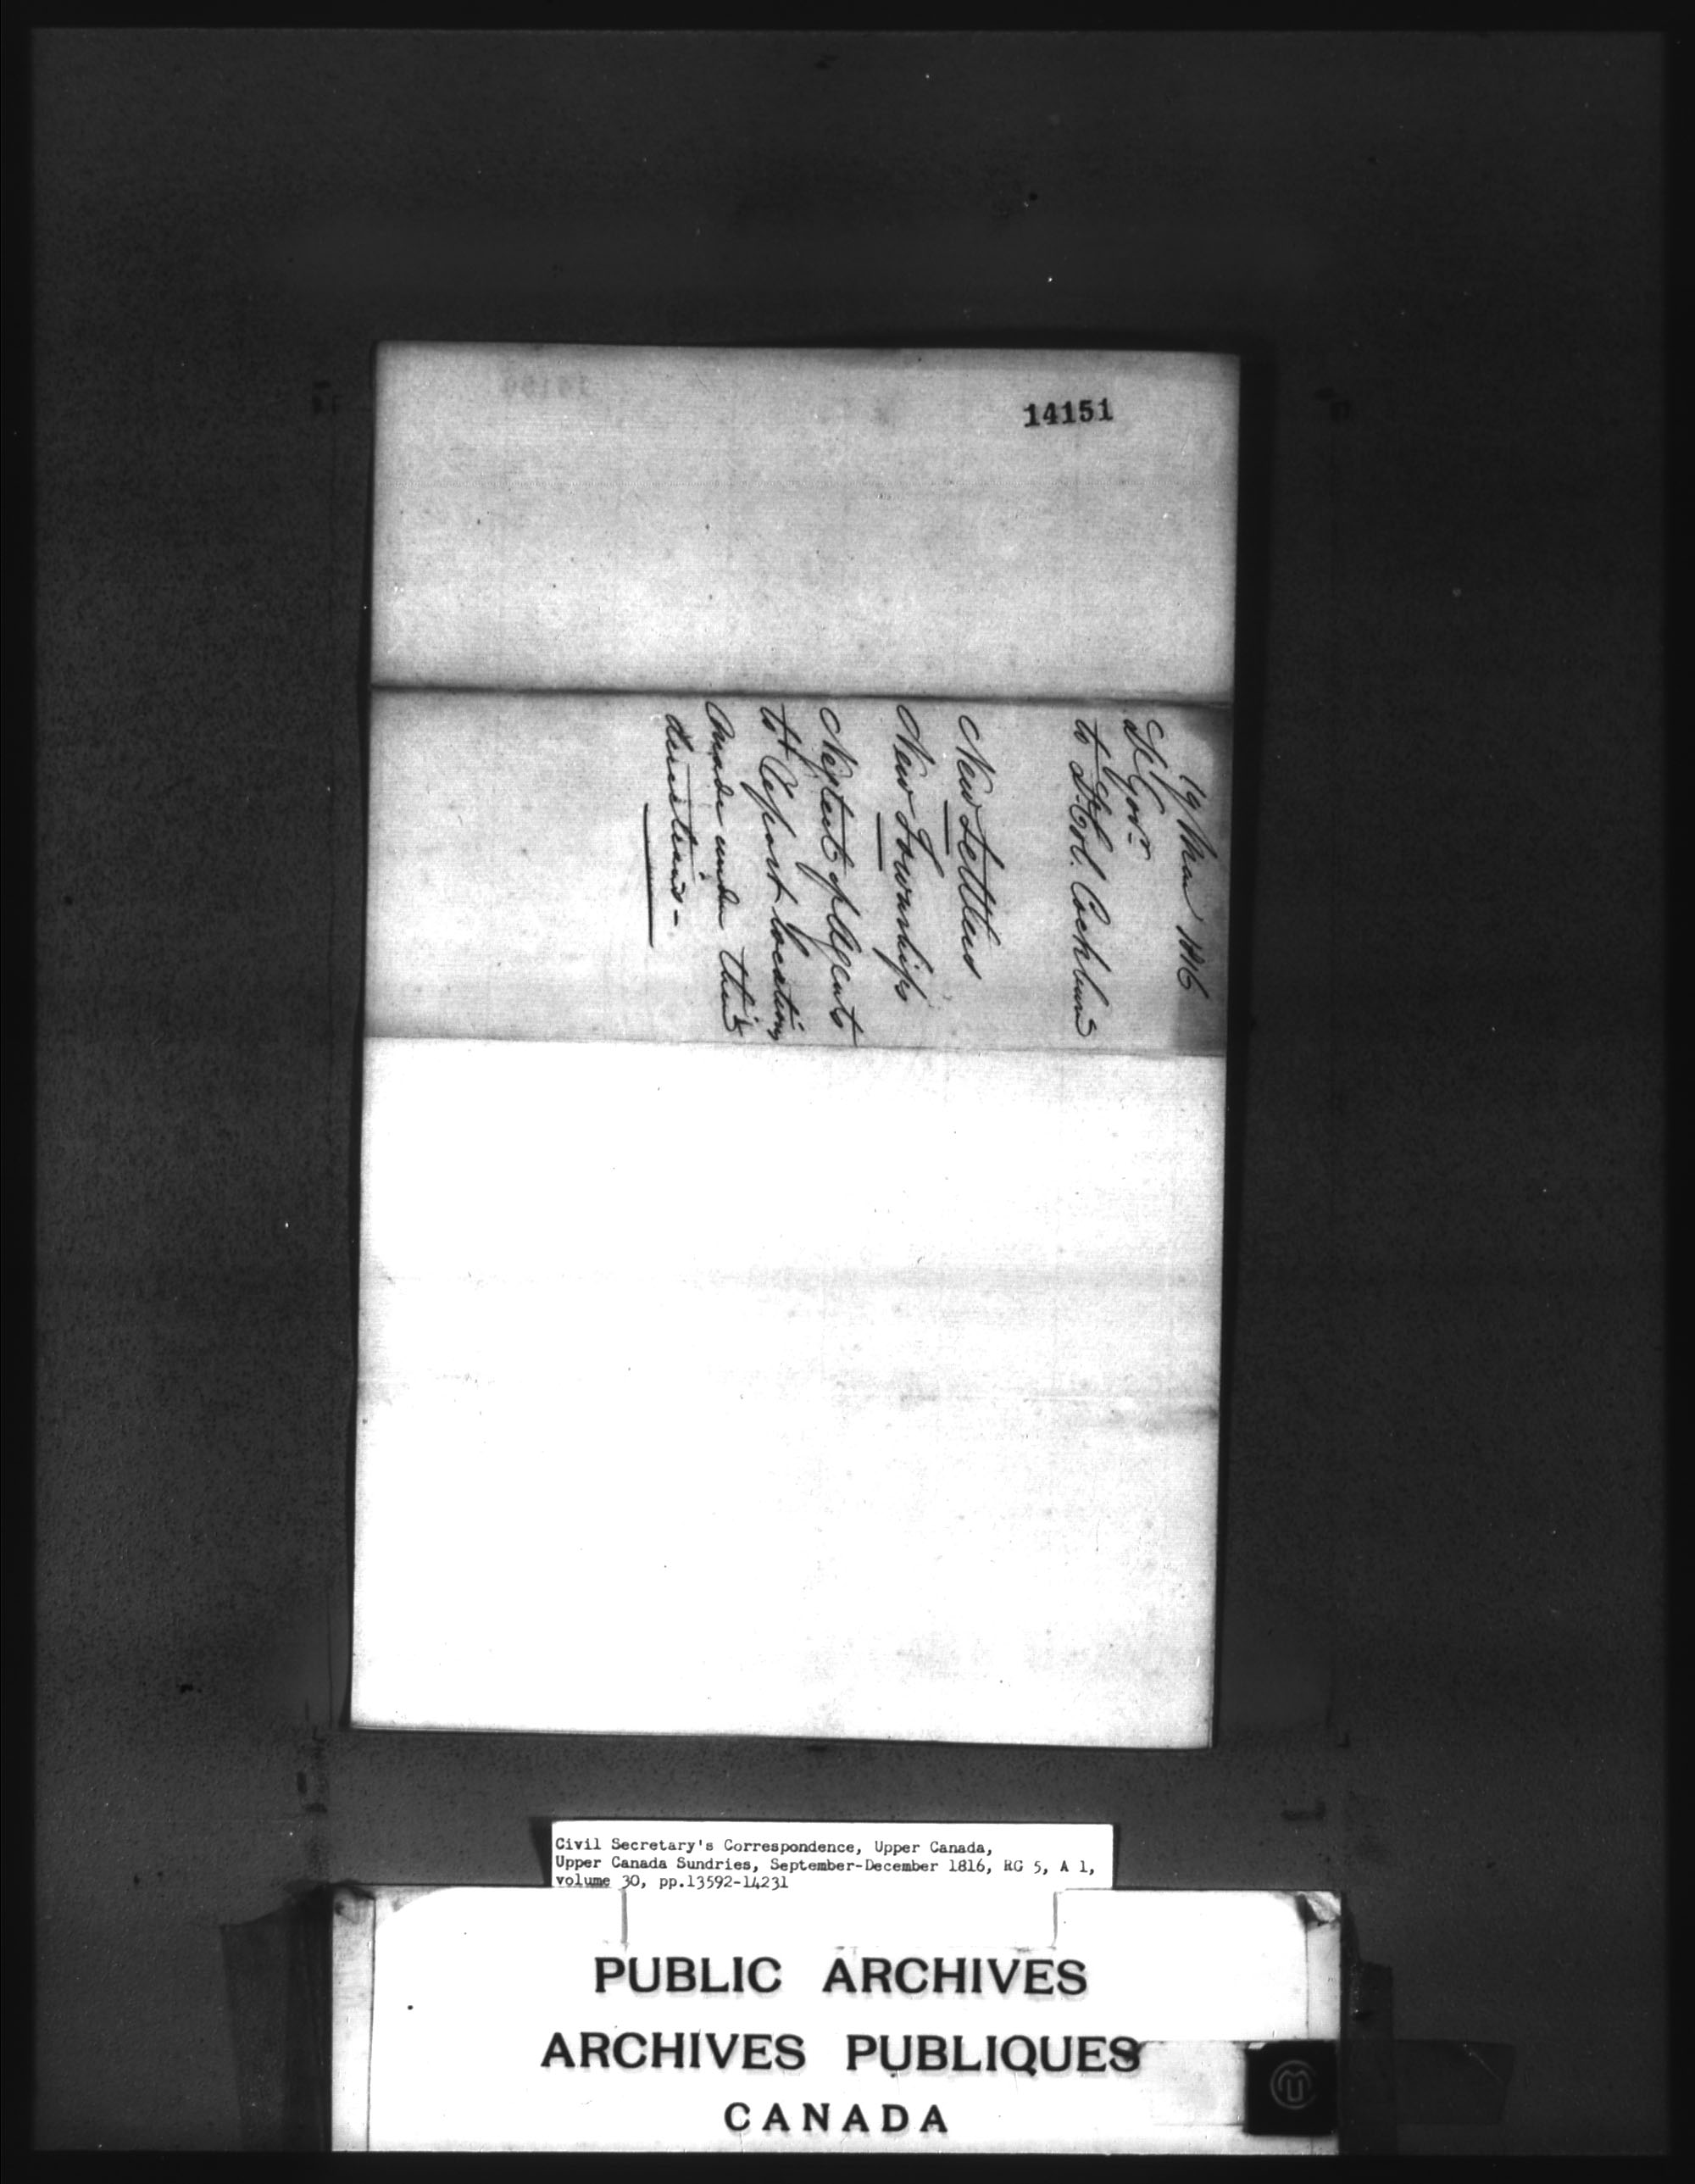 14151
19 1816
Lt Govr
to Lt. Col. Cockburn
New Settlers
New Townships
Neglect of Agents
to Report locations
made under their
directions -
Civil Secretary's Correspondence, Upper Canada,
Upper Canada Sundries, September-December 1816, RG 5, A 1,
volume 30, pp.13592-14231
PUBLIC ARCHIVES
ARCHIVES PUBLIQUES
CANADA